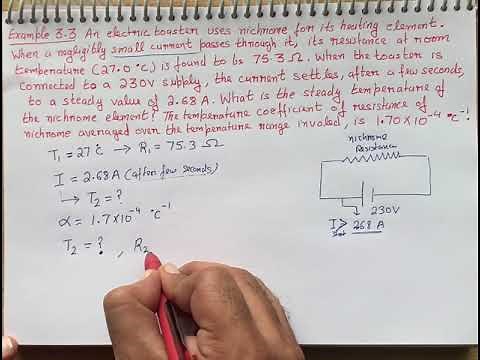 Example 3.3 An electric toaster uses nichrome for its heating element.
When a negligibly small current passes through it, its resistance at room
temperature (27.0 °C) is found to be 75.3 Ω. When the toaster is
connected to a 230V supply, the current settles, after a few seconds,
to a steady value of 2.68 A. What is the steady temperature of
the nichrome element? The temperature coefficient of resistance of
nichrome averaged over the temperature range involed, is 1.70×10⁻⁴ °C⁻¹
T₁ = 27°C → R₁ = 75.3 Ω
I = 2.68A (after few seconds)
↳ T₂ = ?
α = 1.7×10⁻⁴ °C⁻¹
T₂ = ? , R₂
nichrome
Resistance
230V
I 2.68 A